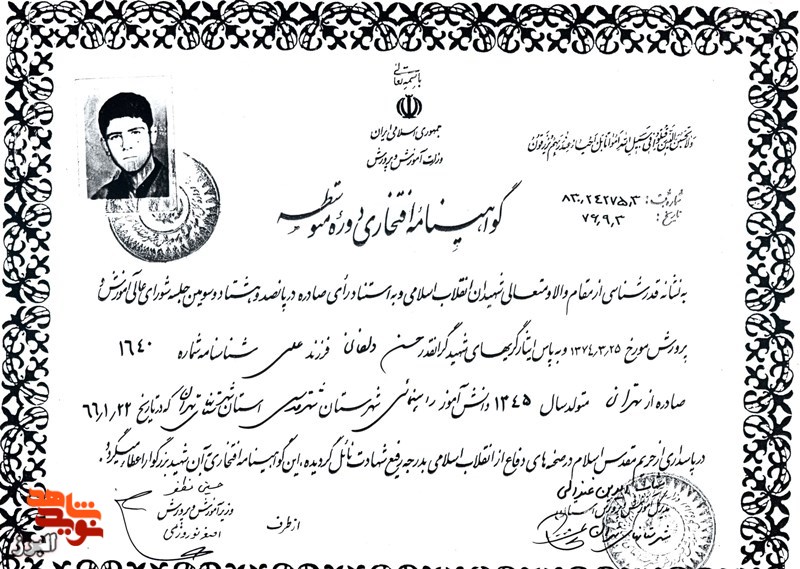 باسمه تعالی
جمهوری اسلامی ایران
وزارت آموزش و پرورش
ولا تحسبن الذین قتلوا فی سبیل الله امواتا بل احیاء عند ربهم یرزقون
شماره ثبت: ۸۳,۲۴۲۷۵,۳
تاریخ: ۷۹,۹,۳
گواهینامهٔ افتخاری دورهٔ متوسطه
به نشانه قدرشناسی از مقام والا و متعالی شهیدان انقلاب اسلامی و به استناد رأی صادره در پانصد و هشتاد و سومین جلسه شورای عالی آموزش و
پرورش مورخ ۱۳۷۴,۳,۲۵ و به پاس ایثارگریهای شهید گرانقدر حسن دلفانی فرزند علی شناسنامه شماره ۱۶۴۰
صادره از تهران متولد سال ۱۳۴۵ دانش آموز راهنمائی شهرستان قدس استان شهرستانهای تهران که در تاریخ ۶۶,۱,۲۲
در پاسداری از حریم مقدس اسلام در صحنه های دفاع از انقلاب اسلامی بدرجه رفیع شهادت نائل گردیده، این گواهینامه افتخاری آن شهید بزرگوار اعطاء میگردد.
حسین مظفر
وزیر آموزش و پرورش
اصغر نوروزی
از طرف
مدیر کل آموزش و پرورش استان
شهرستانهای تهران
شاهد
نوید
البرز